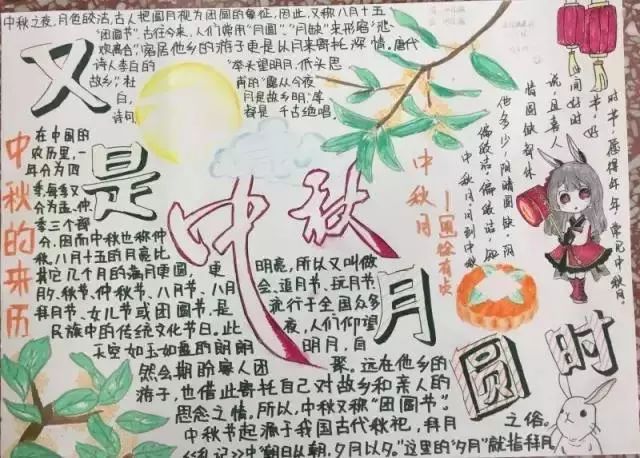 中秋之夜,月色皎洁,古人把圆月视为团圆的象征,因此,又称八月十五
"团圆节".古往今来,人们常用"月圆""月缺"来形容"悲
欢离合",客居他乡的游子更是以月来寄托深情。唐代
诗人李白的 "举头望明月,低头思
故乡",杜 甫的"露从今夜
白, 月是故乡明"等
诗句 都是千古绝唱
又是
中秋
月圆时
中秋的来历
在中国的
农历里,一
年分为四
季,每季又
分为孟、仲、
季三个部
分,因而中秋也称仲
秋。八月十五的月亮比
其它几个月的满月更圆,更 明亮,所以又叫做
月夕、秋节、仲秋节、八月节、八月 会、追月节、玩月节、
拜月节、女儿节或团圆节,是 流行于全国众多
民族中的传统文化节日。此 夜,人们仰望
天空如玉如盘的朗朗 明月,自
然会期盼家人团 聚。远在他乡的
游子,也借此寄托自己对故乡和亲人的
思念之情。所以,中秋又称"团圆节"。
中秋节起源于我国古代秋祀,拜月 之俗。
《礼记》中"朝日从朝,夕月以夕。"这里的"夕月"就指拜月
中秋月
—徐有贞
中秋月,月到中秋
偏皎洁,偏皎洁,知
他多少,阴晴圆缺,阴
晴圆缺都休
说,且喜人
间好时
节,好
时节,愿得年年,常见中秋月。